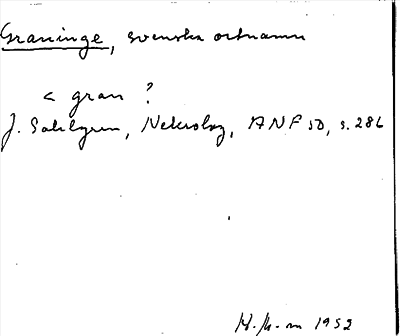 Graninge, svenska ortnamn
< gran ?
J. Sahlgren, Nekrolog, ANF 50, s. 286
H. M-m 1952